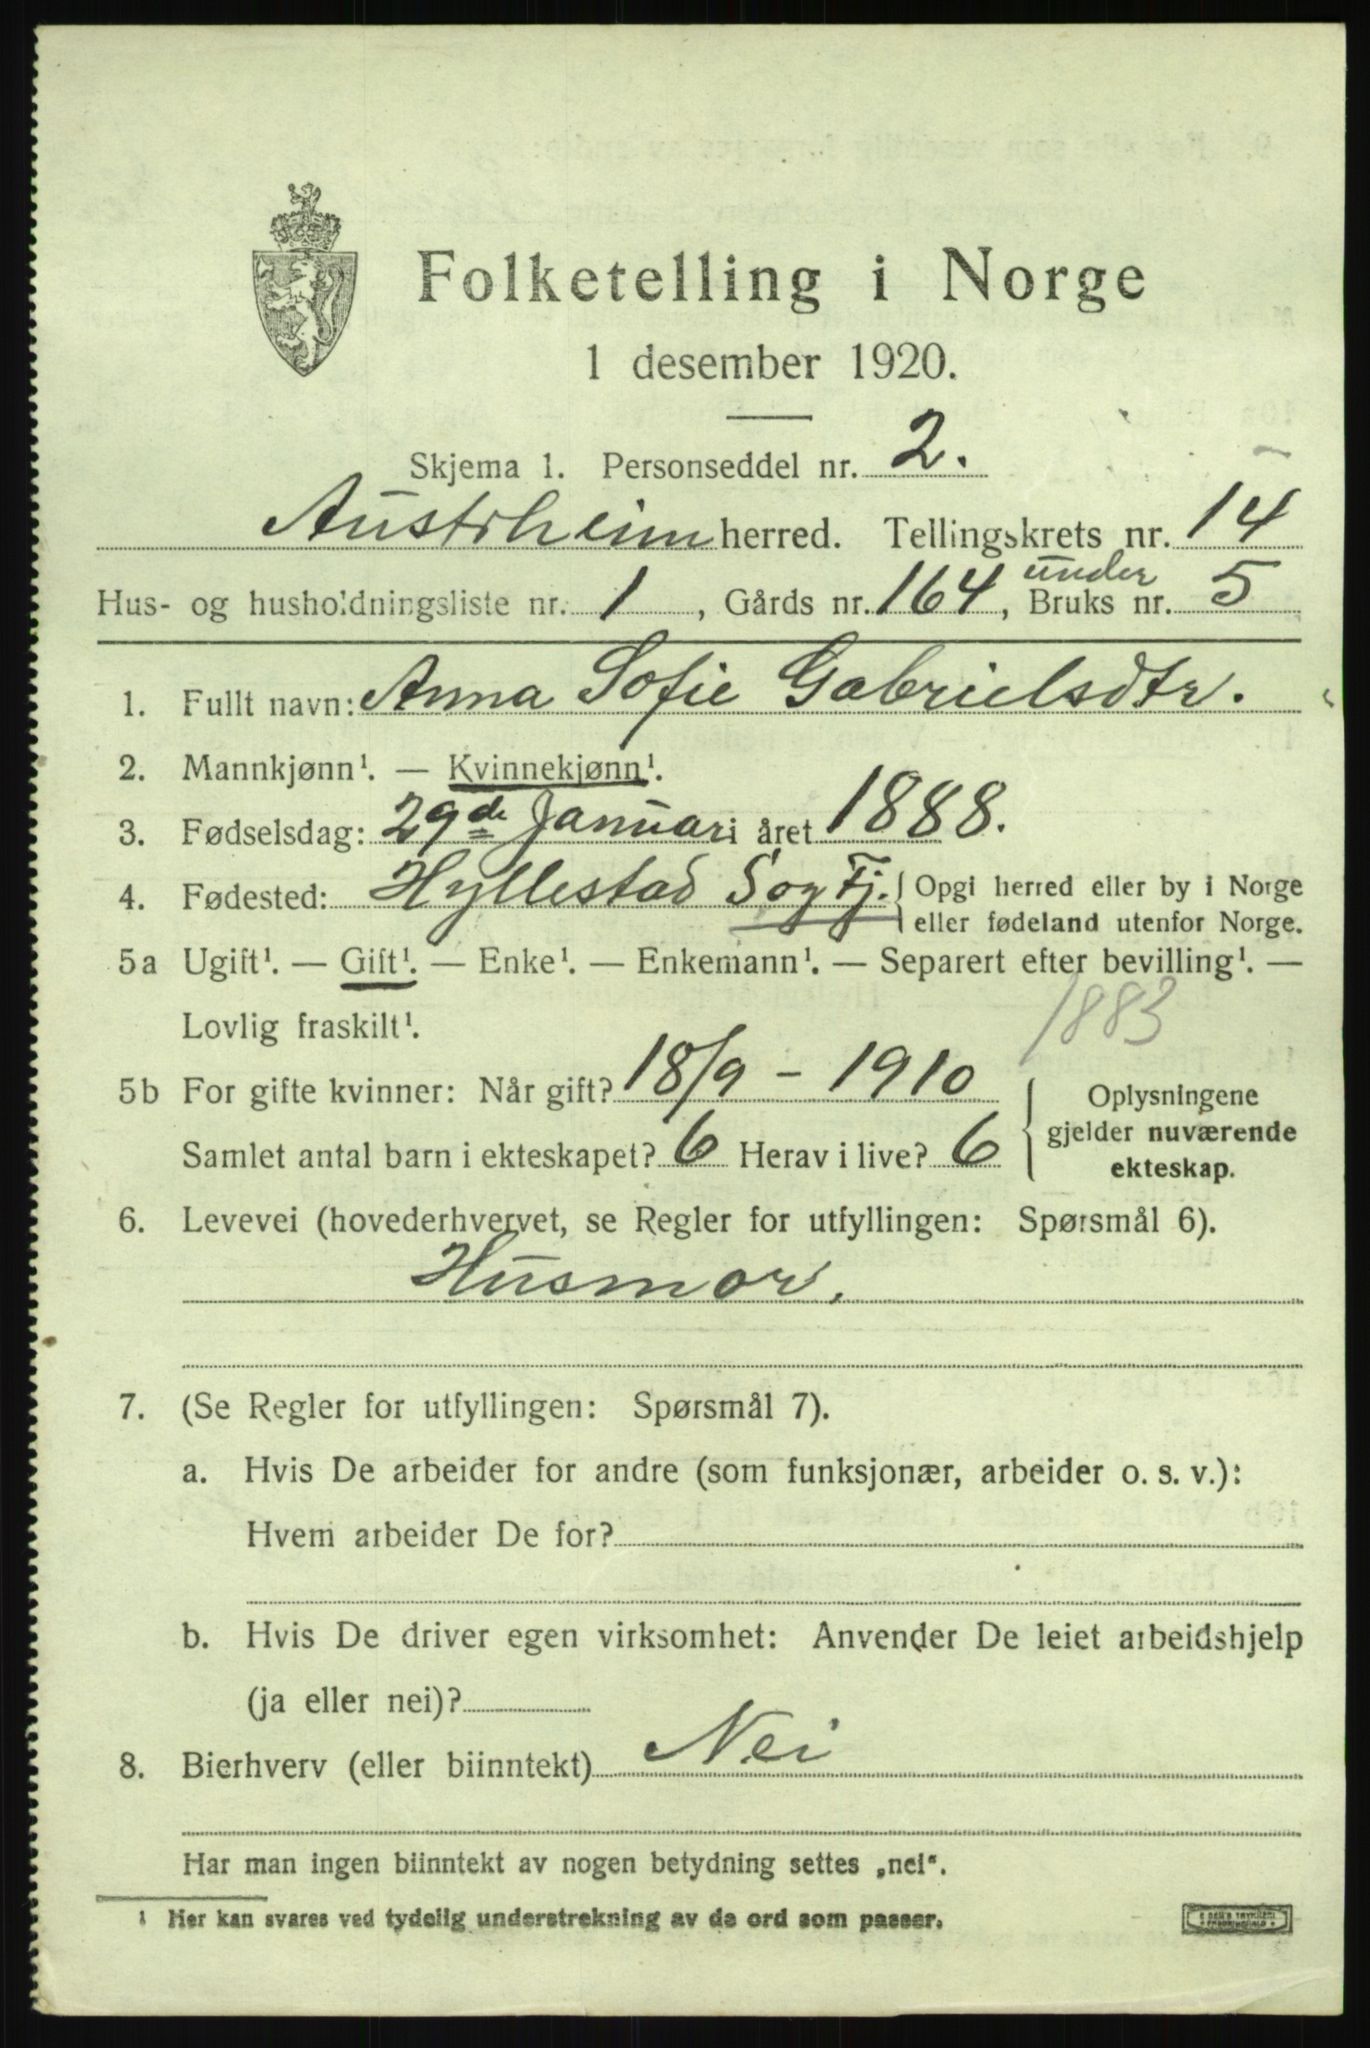 Folketelling i Norge
1 desember 1920.
Skjema 1. Personseddel nr. 2.
Austrheim herred. Tellingskrets nr. 14
Hus- og husholdningsliste nr. 1, Gårds nr. 164, under Bruks nr. 5
1. Fullt navn: Anna Sofie Gabrielsdtr.
2. Mannkjønn¹. — Kvinnekjønn¹.
3. Fødselsdag: 29de Januar i året 1888.
4. Fødested: Hyllestad Sog Fj. { Opgi herred eller by i Norge
eller fødeland utenfor Norge.
5a Ugift¹. — Gift¹. — Enke¹. — Enkemann¹. — Separert efter bevilling¹. —
Lovlig fraskilt¹. 1883
5b For gifte kvinner: Når gift? 18/9 - 1910 { Oplysningene
gjelder nuværende
Samlet antal barn i ekteskapet? 6 Herav i live? 6 ekteskap.
6. Levevei (hovederhvervet, se Regler for utfyllingen: Spørsmål 6).
Husmor.
7. (Se Regler for utfyllingen: Spørsmål 7).
a. Hvis De arbeider for andre (som funksjonær, arbeider o. s. v.):
Hvem arbeider De for?
b. Hvis De driver egen virksomhet: Anvender De leiet arbeidshjelp
(ja eller nei)?
8. Bierhverv (eller biinntekt) Nei
Har man ingen biinntekt av nogen betydning settes „nei“.
¹ Her kan svares ved tydelig understrekning av de ord som passer.